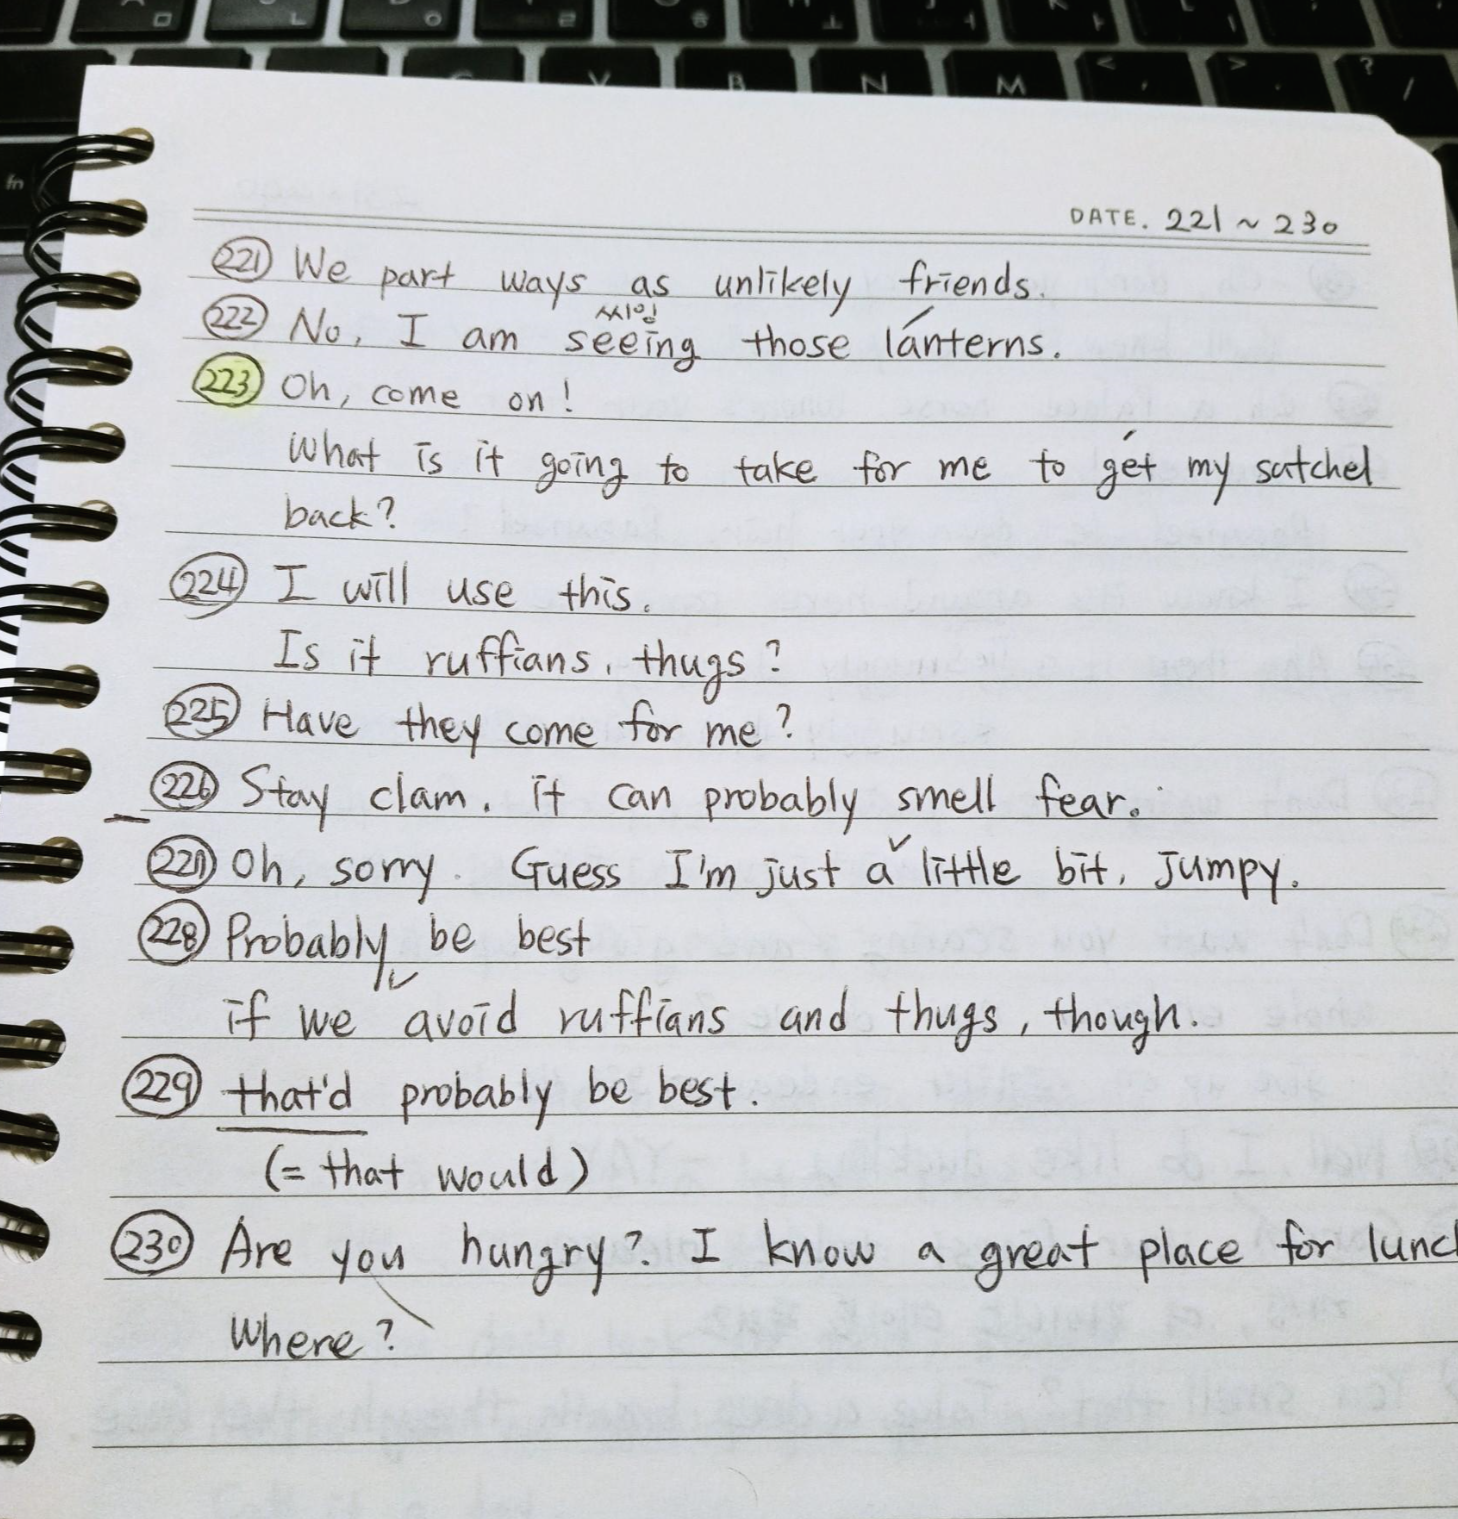 DATE. 221 ~ 230
221 We part ways as unlikely friends.
씨잉
222 No, I am seeing those lanterns.
223 Oh, come on!
What is it going to take for me to get my satchel
back?
224 I will use this.
Is it ruffians, thugs?
225 Have they come for me?
226 Stay clam. it can probably smell fear.
227 Oh, sorry. Guess I'm just a little bit, jumpy.
228 Probably be best
if we avoid ruffians and thugs, though.
229 that'd probably be best.
(= that would)
230 Are you hungry? I know a great place for lunch
Where?
fn
V B N M < , > . ? /